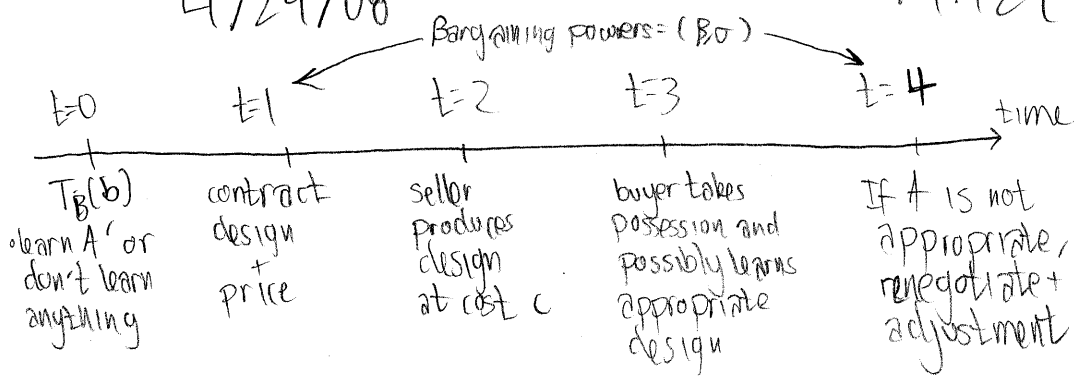 4/29/08
Bargaining powers = (β,σ)
t=0 t=1 t=2 t=3 t=4
time
T_B(b)
•learn A' or
don't learn
anything
contract
design
+
price
seller
produces
design
at cost c
buyer takes
possession and
possibly learns
appropriate
design
If A is not
appropriate,
renegotiate +
adjustment